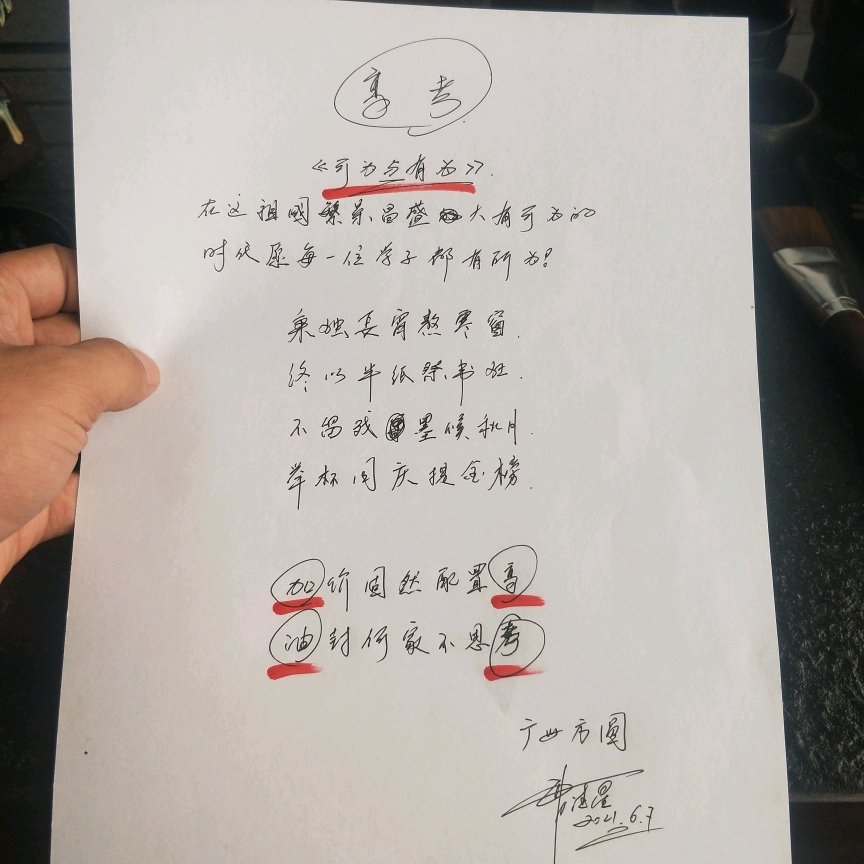 高 考
《可为与有为》.
在这祖国繁荣昌盛大有可为的
时代愿每一位学子都有所为!
乘烛长宵熬寒窗.
终以半纸祭书狂.
不留残墨候秋月.
举杯同庆提金榜.
加价固然配置高
油封何家不思考
广州方圆
2021.6.7